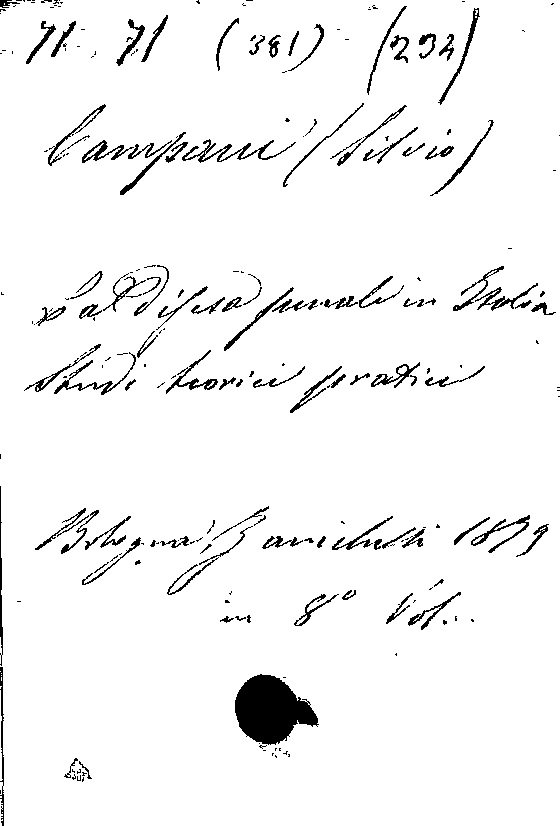 71. 71 (381) (232)
Campani (Silvio)
La Difesa penale in Italia
Studi teorici pratici
Bologna, Zanichelli 1879
in 8º Vol..